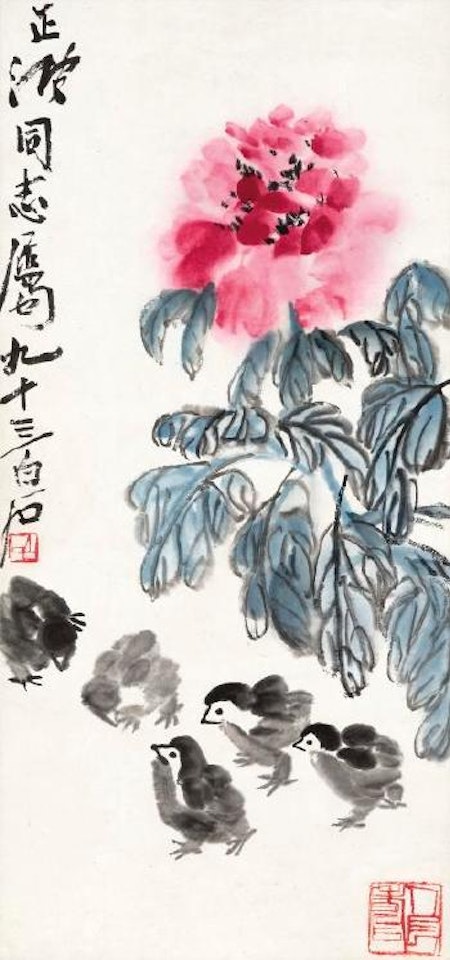 正鸿同志属九十三白石